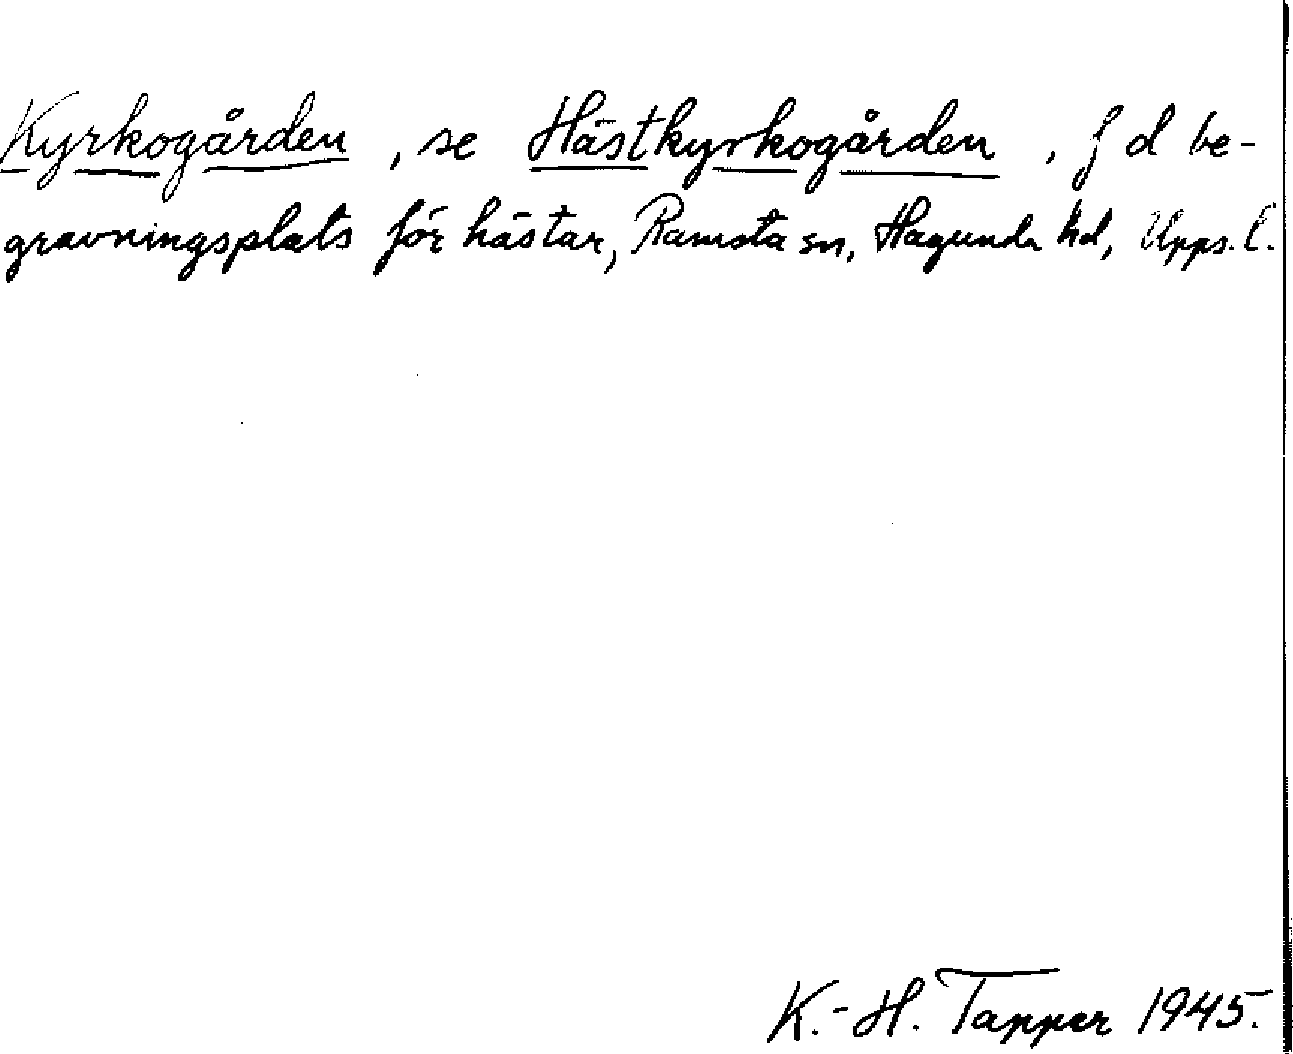 Kyrkogården, se Hästkyrkogården, f d be-
gravningsplats för hästar, Ramsta sn, Hagunda hd, Upps. l.
K.-H. Tapper 1945.